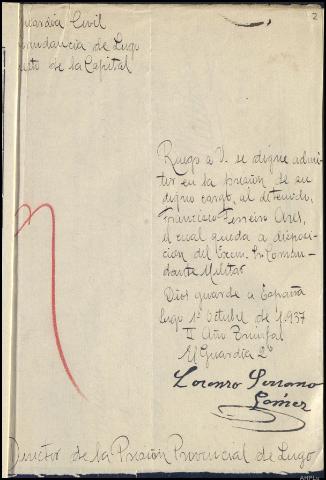 2
Guardia Civil
Comandancia de Lugo
Puesto de la Capital
Ruego a V. se digne admi-
tir en la prisión de su
digno cargo, al detenido,
Francisco Ferreiro
el cual queda a disposi-
ción del Excm. Sr. Coman-
dante Militar
Dios guarde a España
Lugo 1º Octubre de 1.937
II Año Triunfal
El Guardia 2º
Lorenzo Serrano
Gómez
Director de la Prisión Provincial de Lugo
AHPLu